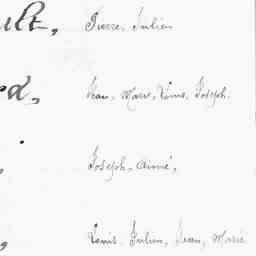 ult, Pierre, Julien
rd, Jean, Marie, Louis, Joseph.
, Joseph, Aimé,
, Louis, Julien, Jean, Marie